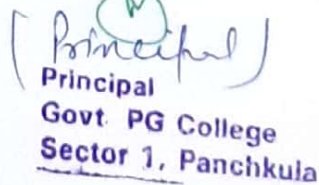 (Principal)
Principal
Govt. PG College
Sector 1, Panchkula